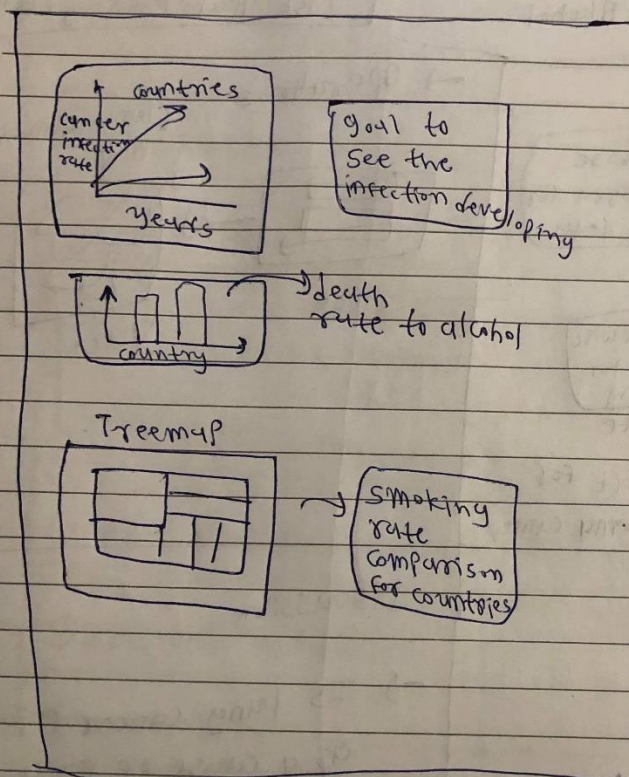 countries
cancer
infection
rate
years
goal to
see the
infection developing
death
rate to alcohol
country
Treemap
smoking
rate
comparison
for countries